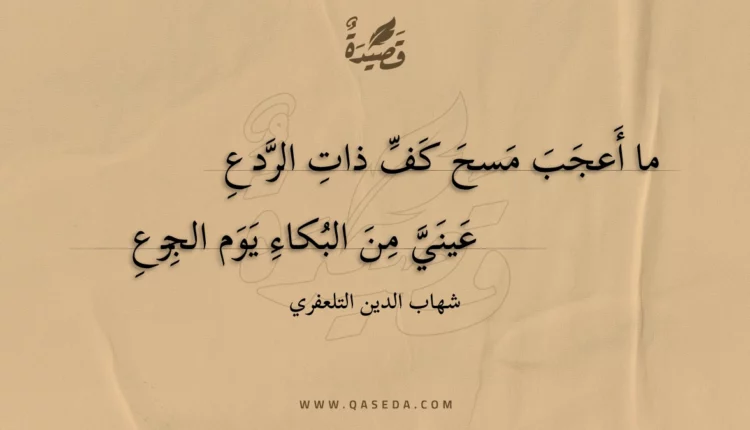 قَصِيْدَةٌ
ما أَعجَبَ مَسحَ كَفِّ ذاتِ الرَّدعِ
عَينَيَّ مِنَ البُكاءِ يَوَم الجِزعِ
شهاب الدين التلعفري
WWW.QASEDA.COM